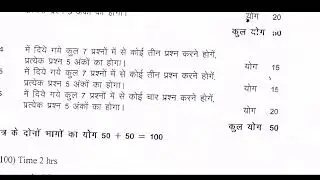 प्रत्येक प्रश्न 5 अंकों का होगा। योग 20
कुल योग 50
4 में दिये गये कुल 7 प्रश्नों में से कोई तीन प्रश्न करने होगें,
प्रत्येक प्रश्न 5 अंकों का होगा। योग 15
में दिये गये कुल 7 प्रश्नों में से कोई तीन प्रश्न करने होगें,
प्रत्येक प्रश्न 5 अंकों का होगा। योग 15
में दिये गये कुल 7 प्रश्नों में से कोई चार प्रश्न करने होगें,
प्रत्येक प्रश्न 5 अंकों का होगा। योग 20
त्र के दोनों भागों का योग 50 + 50 = 100 कुल योग 50
100) Time 2 hrs